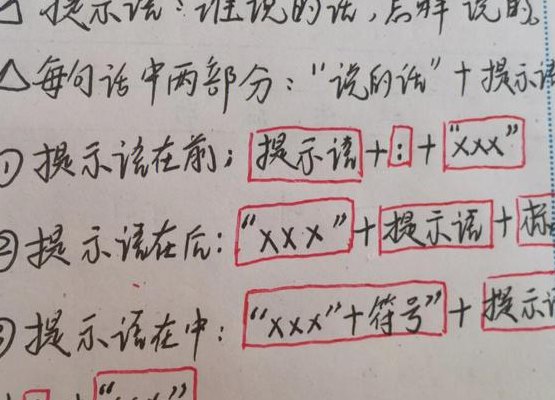 提示语：谁说的话，怎样说的
△每句话中两部分：“说的话”+提示语
①提示语在前：提示语+：+“xxx”
②提示语在后：“xxx”+提示语+标
③提示语在中：“xxx”+符号”+提示语
“xxx”